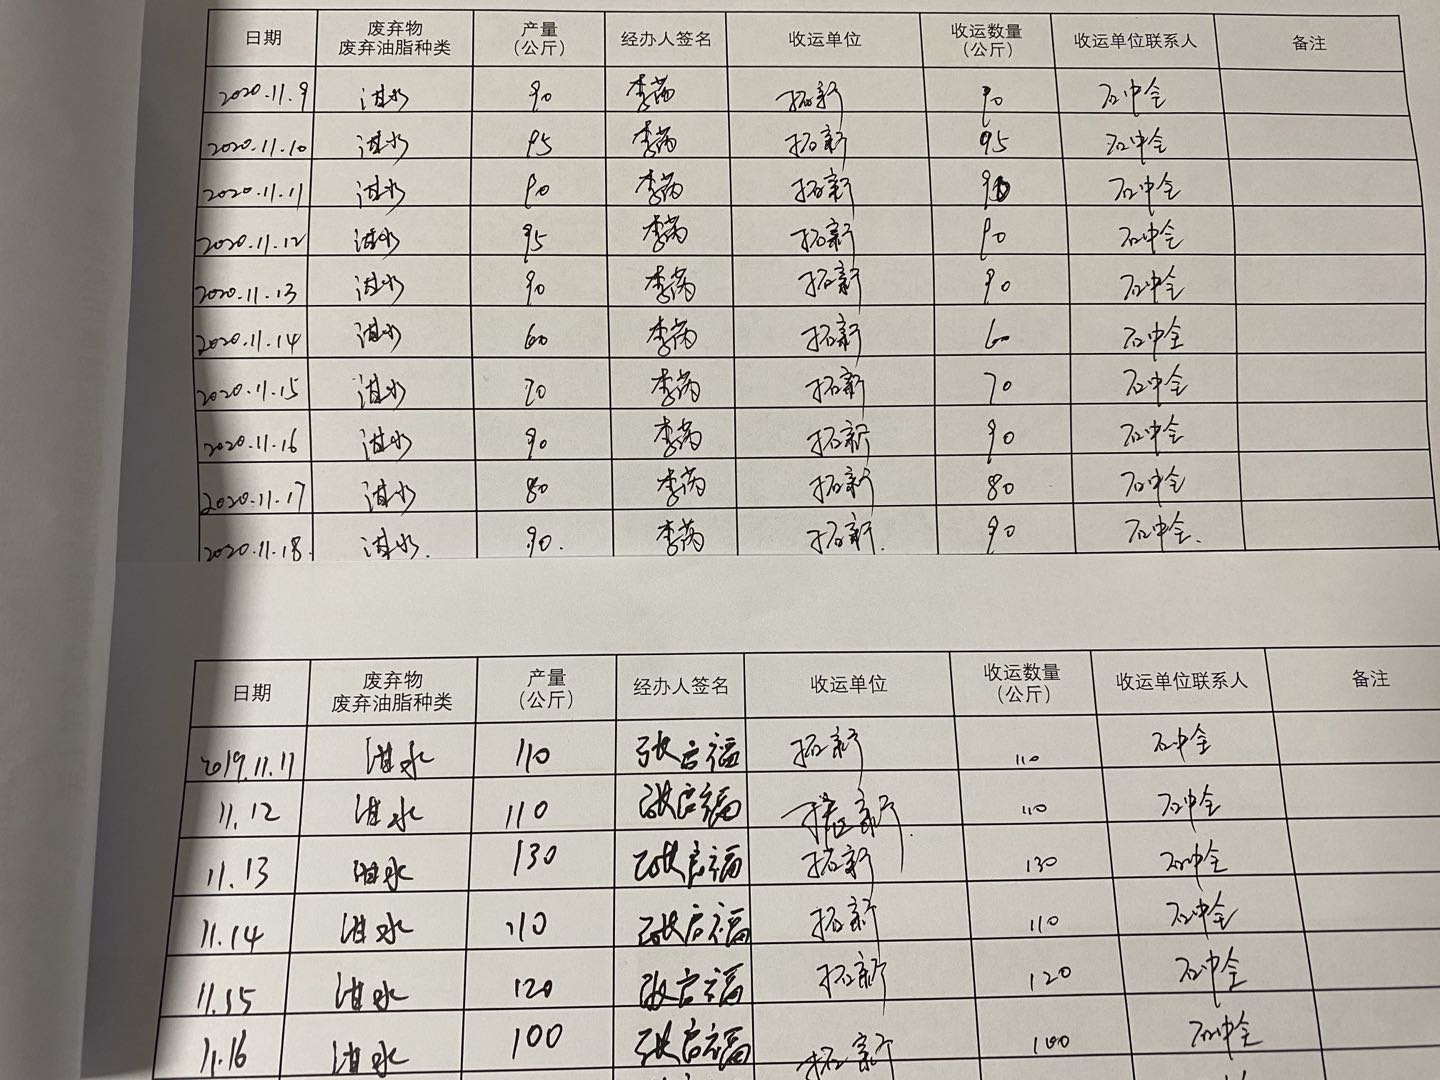 日期 废弃物 废弃油脂种类 产量（公斤） 经办人签名 收运单位 收运数量（公斤） 收运单位联系人 备注
2020.11.9 泔水 90 李芮 拓新 90 石中全
2020.11.10 泔水 95 李芮 拓新 95 石中全
2020.11.11 泔水 90 李芮 拓新 90 石中全
2020.11.12 泔水 95 李芮 拓新 90 石中全
2020.11.13 泔水 90 李芮 拓新 90 石中全
2020.11.14 泔水 60 李芮 拓新 60 石中全
2020.11.15 泔水 70 李芮 拓新 70 石中全
2020.11.16 泔水 90 李芮 拓新 90 石中全
2020.11.17 泔水 80 李芮 拓新 80 石中全
2020.11.18. 泔水. 90. 李芮 拓新. 90 石中全.
日期 废弃物 废弃油脂种类 产量（公斤） 经办人签名 收运单位 收运数量（公斤） 收运单位联系人 备注
2019.11.11 泔水 110 张启福 拓新 110 石中全
11.12 泔水 110 张启福 拓新. 110 石中全
11.13 泔水 130 张启福 拓新 130 石中全
11.14 泔水 110 张启福 拓新 110 石中全
11.15 泔水 120 张启福 拓新 120 石中全
11.16 泔水 100 张启福 拓新 100 石中全